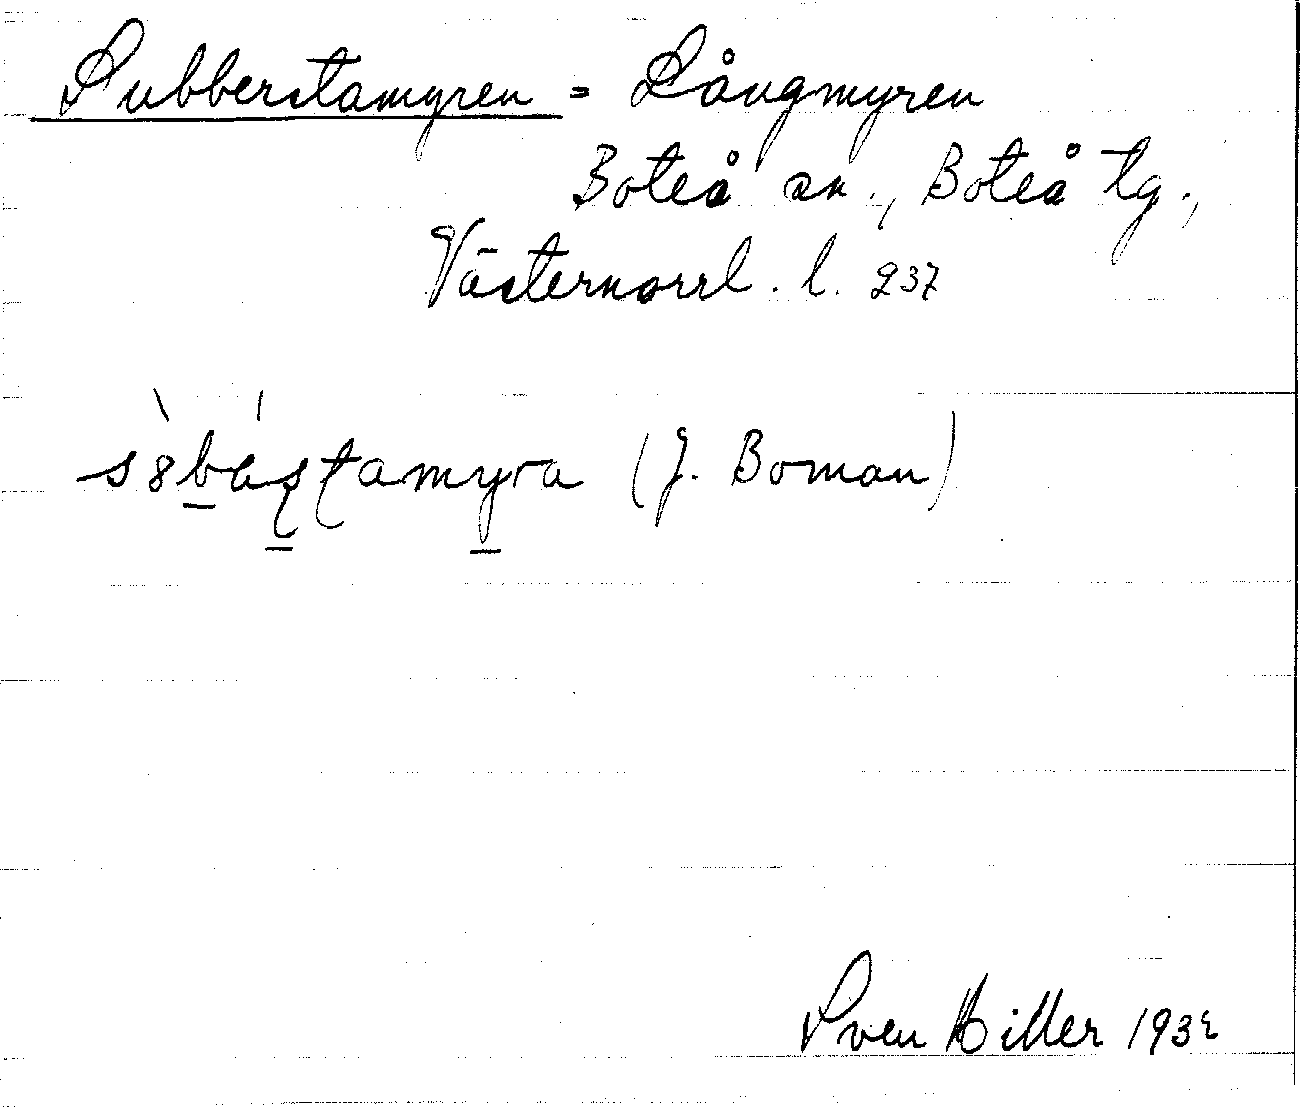 Subberstamyren = Långmyren
Boteå sn., Boteå tg.,
Västernorrl. l. 237
s8bas̨t̨amyra (J. Boman)
Sven Hiller 1932